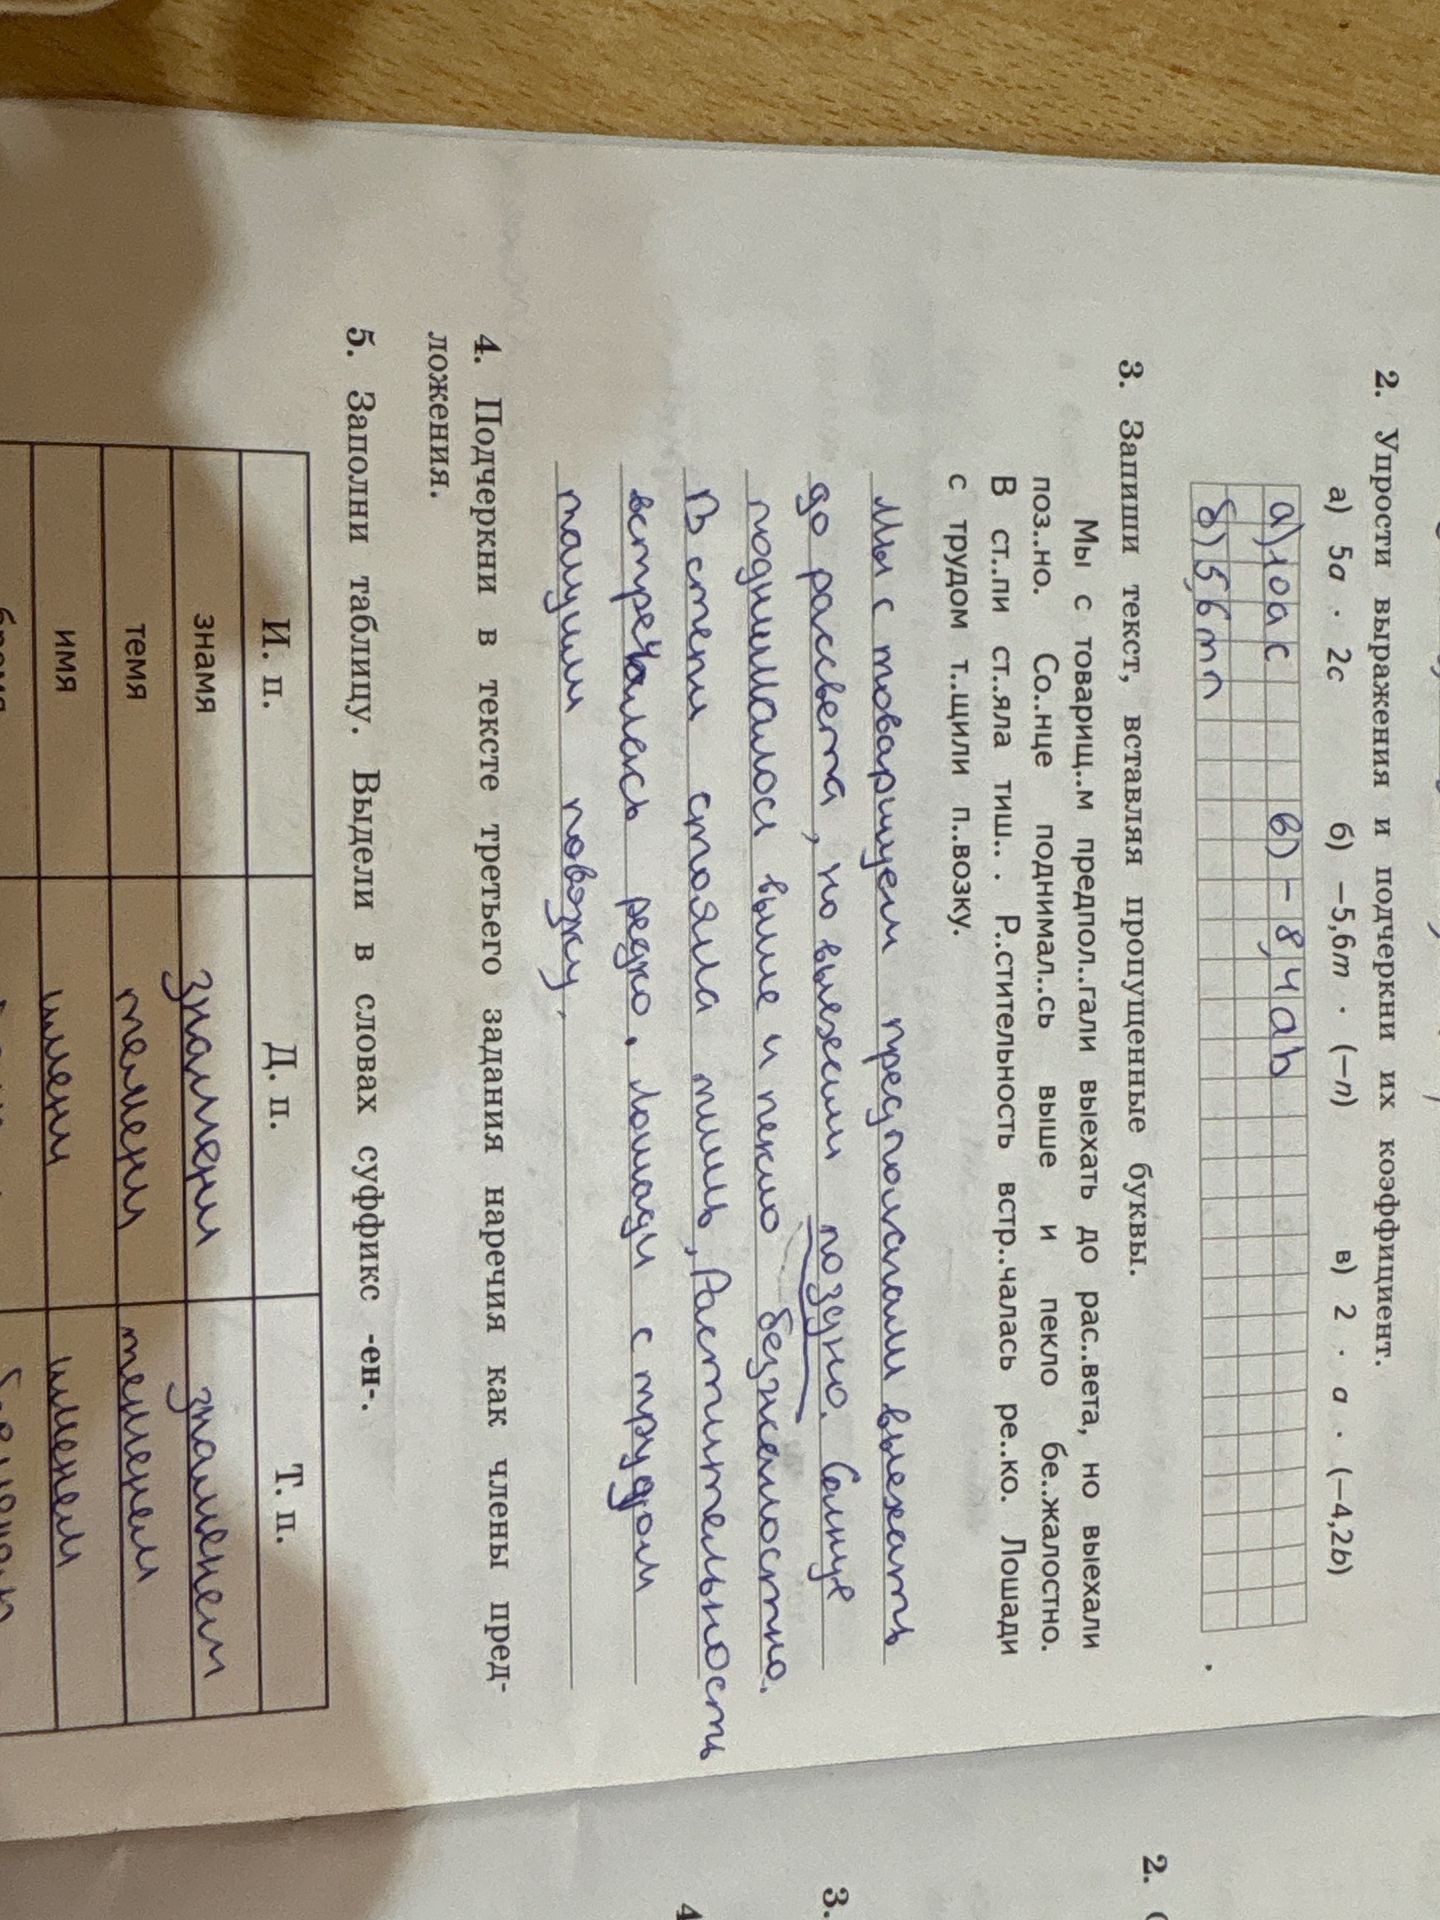 2. Упрости выражения и подчеркни их коэффициент.
а) 5a · 2c б) −5,6m · (−n) в) 2 · a · (−4,2b)
а) 10ac в) −8,4ab
б) 5,6mn
3. Запиши текст, вставляя пропущенные буквы.
Мы с товарищ..м предпол..гали выехать до рас..вета, но выехали
поз..но. Со..нце поднимал..сь выше и пекло бе..жалостно.
В ст..пи ст..яла тиш.. . Р..стительность встр..чалась ре..ко. Лошади
с трудом т..щили п..возку.
Мы с товарищем предполагали выехать
до рассвета, но выехали поздно. Солнце
поднималось выше и пекло безжалостно.
В степи стояла тишь, Растительность
встречалась редко. Лошади с трудом
тащили повозку.
4. Подчеркни в тексте третьего задания наречия как члены пред-
ложения.
5. Заполни таблицу. Выдели в словах суффикс -ен-.
И. п. Д. п. Т. п.
знамя знамени знаменем
темя темени теменем
имя имени именем
2.
3.
4